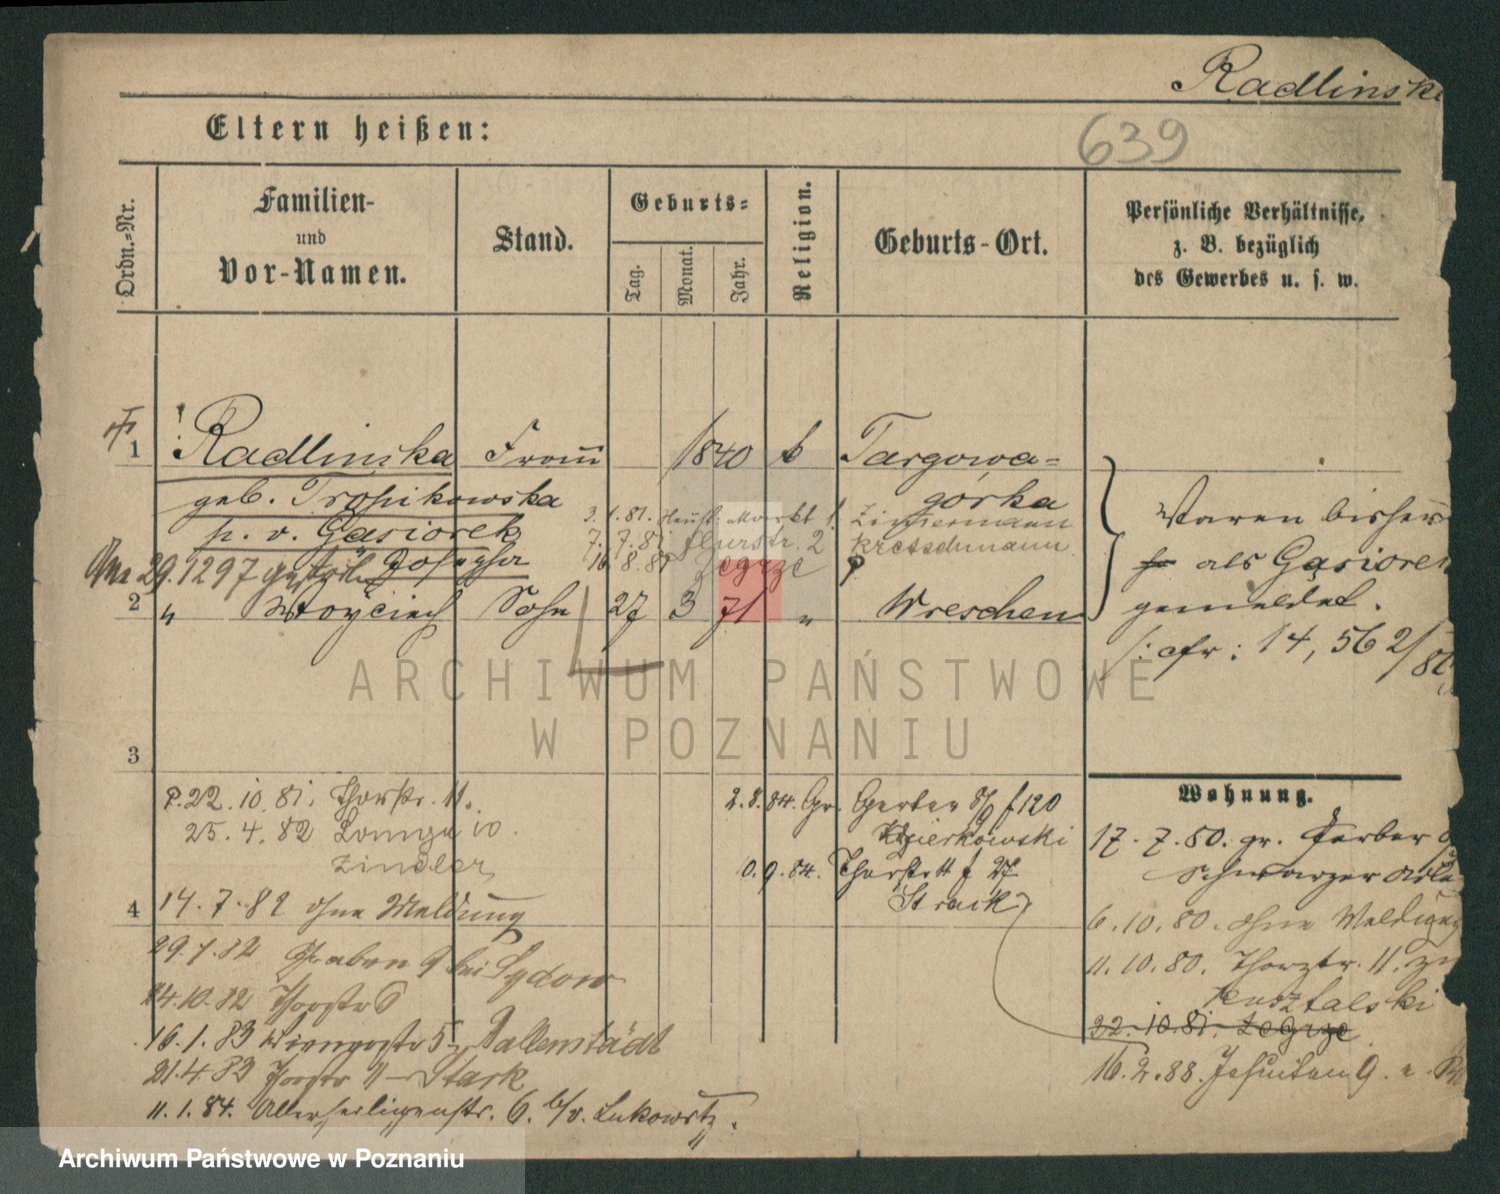 Radlinski
Eltern heißen:
639
Ordn.-Nr.
Familien-
und
Vor-Namen.
Stand.
Geburts-
Tag.
Monat.
Jahr.
Religion.
Geburts-Ort.
Persönliche Verhältnisse,
z. B. bezüglich
des Gewerbes u. s. w.
1
Radlinska Frau 1840 k Targowa-
geb. Tropikowska górka
3.1.81. Neust. Markt 1. Zimmermann
p. v. Gasiorek
7.7.81 2 Kretschmann
29.1297 Josepha
16.8.81 Zegrze
2 " Woyciech Sohn 27 3 71 " Wreschen
Waren bisher
als Gąsiorek
gemeldet.
/: cfr: 14,562/80
ARCHIWUM PAŃSTWOWE
W POZNANIU
3
P. 22.10.81. Thorstr. 11.
25.4.82 10.
Zindler
4
14.7.82 ohne Meldung
29.7.82 Graben 9 bei Sydow
14.10.82 Thorstr
16.1.83 5 Ballenstädt
21.4.83 Thorstr 11 – Stark
11.1.84. Allerheiligenstr. 6. b/v. Lukowitz.
2.8.84. Gr. Gerber 8/9 f 120
0.9.84. Thorstr 11 f 27
Strack
Wohnung.
17.7.80. gr. Gerber
Schwarzer Adler
6.10.80. ohne Meldung
11.10.80. Thorstr. 11.
Kusztalski
22.10.81. Zegrze
16.2.88. Jesuiten 9.
Archiwum Państwowe w Poznaniu